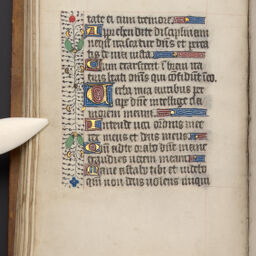 tate et cum tremore
Apprehendite disciplinam
nequando irascatur dns et perea
tis de via iusta
Cum exarserit in brevi
omnes qui
Verba mea auribus per
cipe dne intellige cla
morem meum
Intende voci oronis mee
rex meus et deus meus
Qm ad te orabo dne mane
exaudies vocem meam
Mane astabo tibi et videbo
qm non deus volens iniqui